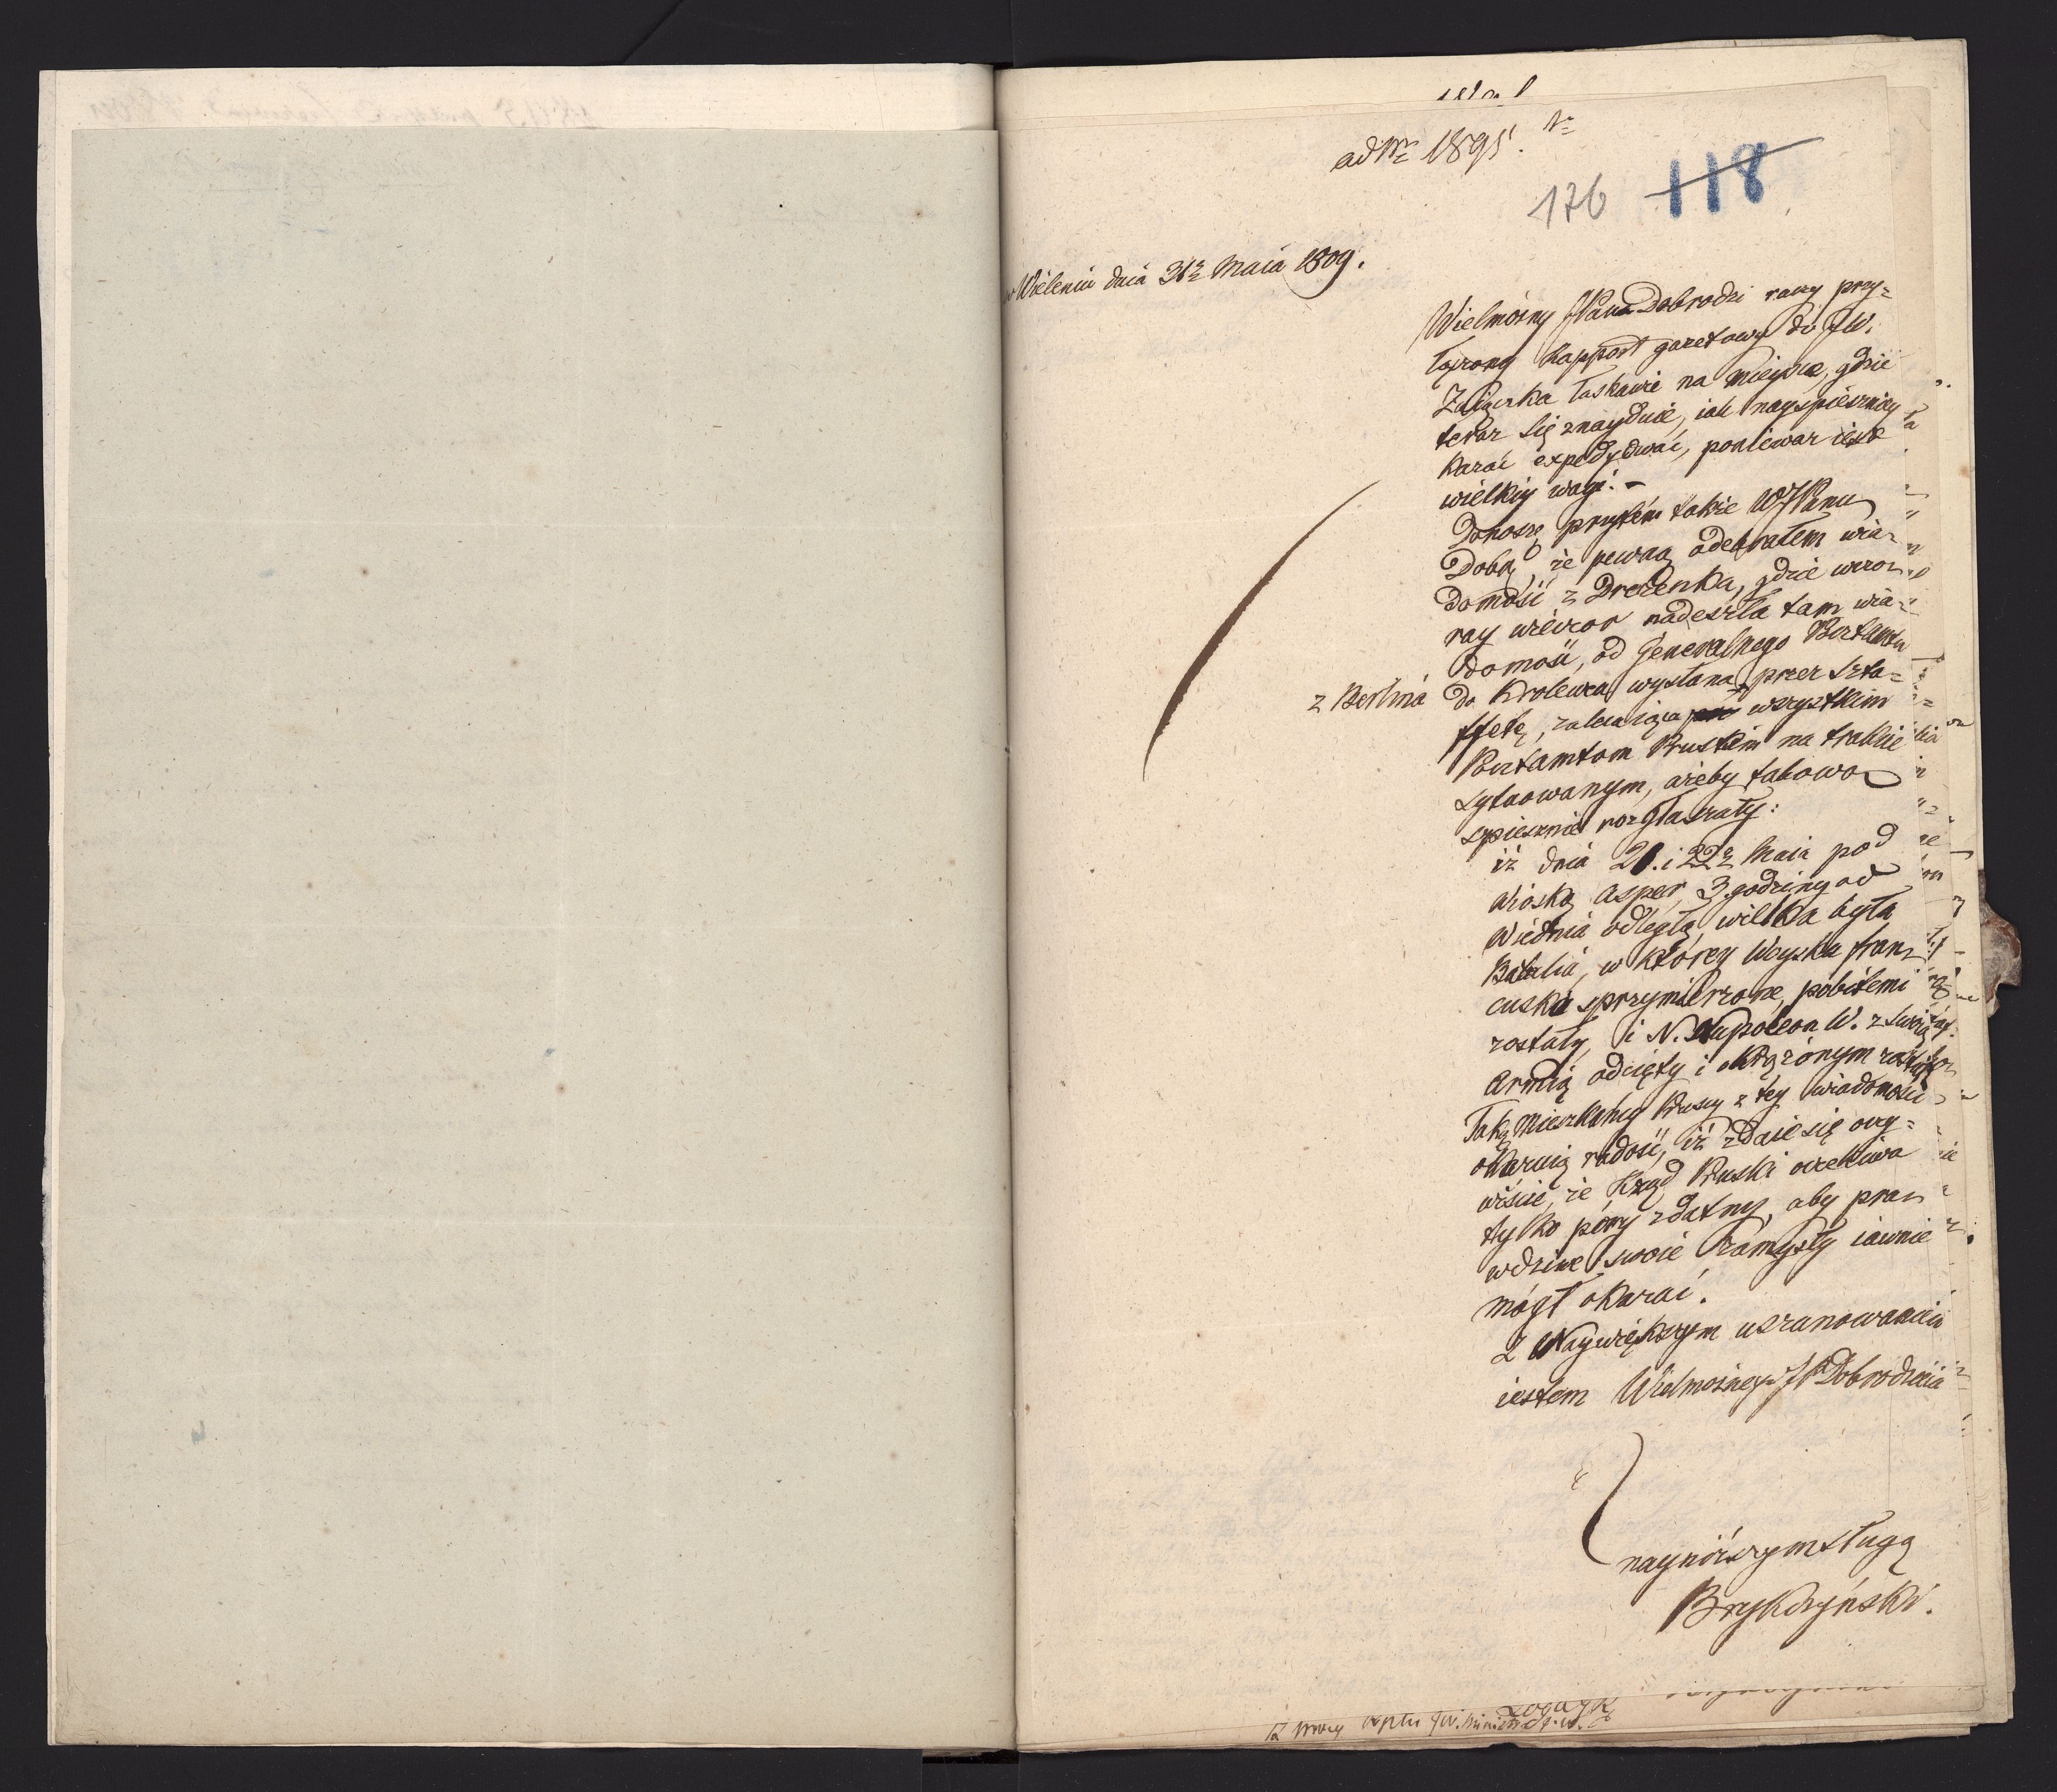 ad Nr 1895.
176 118
w Wieleniu dnia 31° Maia 1809.
Wielmożny JPana Dobrodzi raczy przy=
łączony Rapport gazetowy do JW.
Zaiączka łaskawie na mieysce, gdzie
teraz się znayduie, iak nayspieszniey
kazać expedyować, poniewaz iest
wielkiy wagi. –
Donoszę przytém także WJPanu
Dobr, że pewną odebrałem wia=
domość z Drezenka, gdzie wczo=
ray wieczor nadeszła tam wia=
domość, od Generalnego Pocztamtu
z Berlina do Krolewca wysłana, przez szta=
ffetę, zalecaiąca wszystkim
Pocztamtom Pruskim na trakcie
sytuowanym, ażeby takową
spiesznie rozgłaszały:
iż dnia 21. i 22° Maia pod
Wioską Asper, 3 godziny od
Wiednia odległą, wielka była
Batalia, w którey Woyska fran=
cuskie sprzymierzone, pobitemi
zostały, i N. Napoleon W. z swoią
Armią odcięty i okrążonym został
Taką mieszkańcy Pruscy z tey wiadomości
okazuią radość, iż zdaie się oczy=
wiście, że Rząd Pruski oczekiwa
tylko pory zdatney, aby praw=
wdziwe swoie zamysły iawnie
mógł okazać.
Z Naywiększym uszanowaniem
iestem Wielmożnego JP Dobrodzieia
nayniższym sługą
Brykczyński.